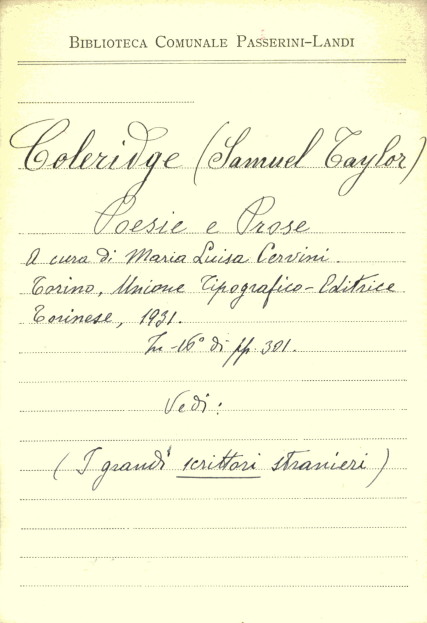 BIBLIOTECA COMUNALE PASSERINI-LANDI
Coleridge (Samuel Taylor)
Poesie e Prose
A cura di Maria Luisa Cervini.
Torino, Unione Tipografico-Editrice
Torinese, 1931.
In-16° di pp. 301.
Vedi:
(I grandi scrittori stranieri)